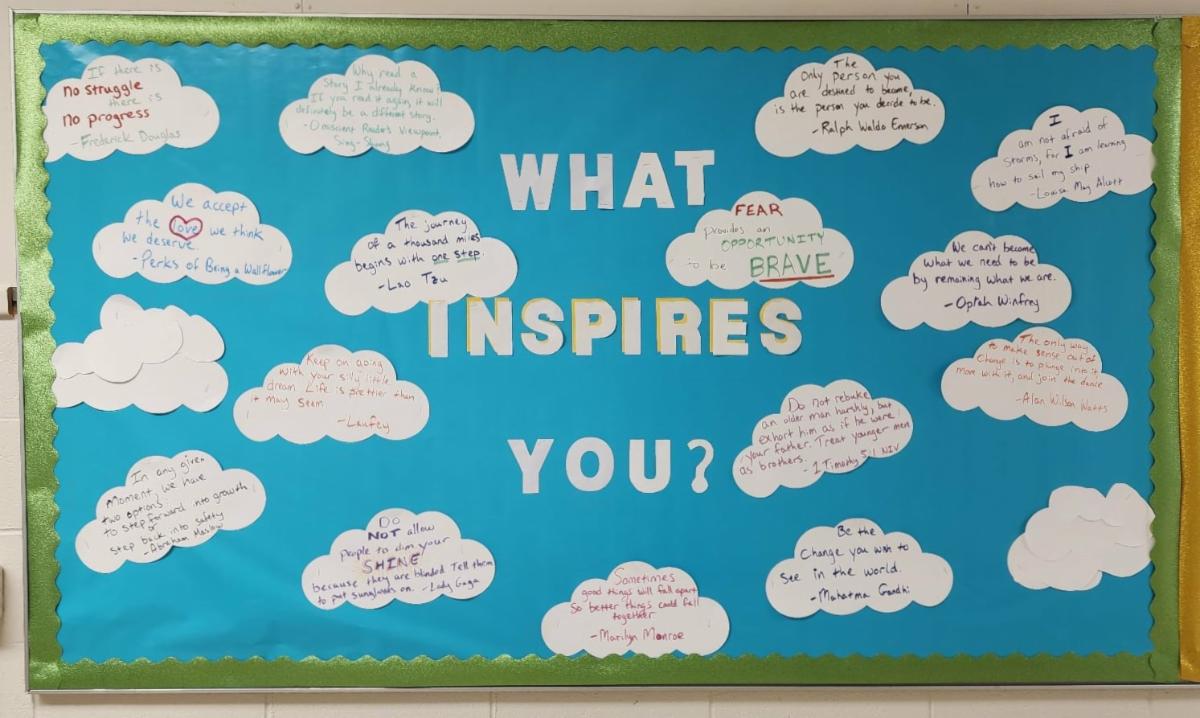 If there is
no struggle
there is
no progress
-Frederick Douglas
Why read a
Story I already know?
If you read it again, it will
definitely be a different story.
-Omniscient Reader's Viewpoint,
Sing-Shong
The
Only person you
are destined to become,
is the person you decide to be.
-Ralph Waldo Emerson
I
am not afraid of
Storms, for I am learning
how to sail my ship
-Louisa May Alcott
WHAT
INSPIRES
YOU?
We accept
the love we think
we deserve.
-Perks of Being a Wallflower
The journey
of a thousand miles
begins with one step.
-Lao Tzu
FEAR
provides an
OPPORTUNITY
to be BRAVE
We can't become
what we need to be
by remaining what we are.
-Oprah Winfrey
Keep on going
with your silly little
dream. Life is prettier than
it may seem
-Laufey
The only way
to make sense out of
Change is to plunge into it,
move with it, and join the dance
-Alan Wilson Watts
Do not rebuke
an older man harshly, but
exhort him as if he were
your father. Treat younger men
as brothers. - 1 Timothy 5:1 NIV
In any given
Moment, we have
two options
to step forward into growth
or
step back into safety
-Abraham Maslow
Do
NOT allow
people to dim your
SHINE
because they are blinded. Tell them
to put sunglasses on. -Lady Gaga
Sometimes
good things will fall apart
So better things could fall
together
-Marilyn Monroe
Be the
Change you wish to
see in the world.
-Mahatma Gandhi